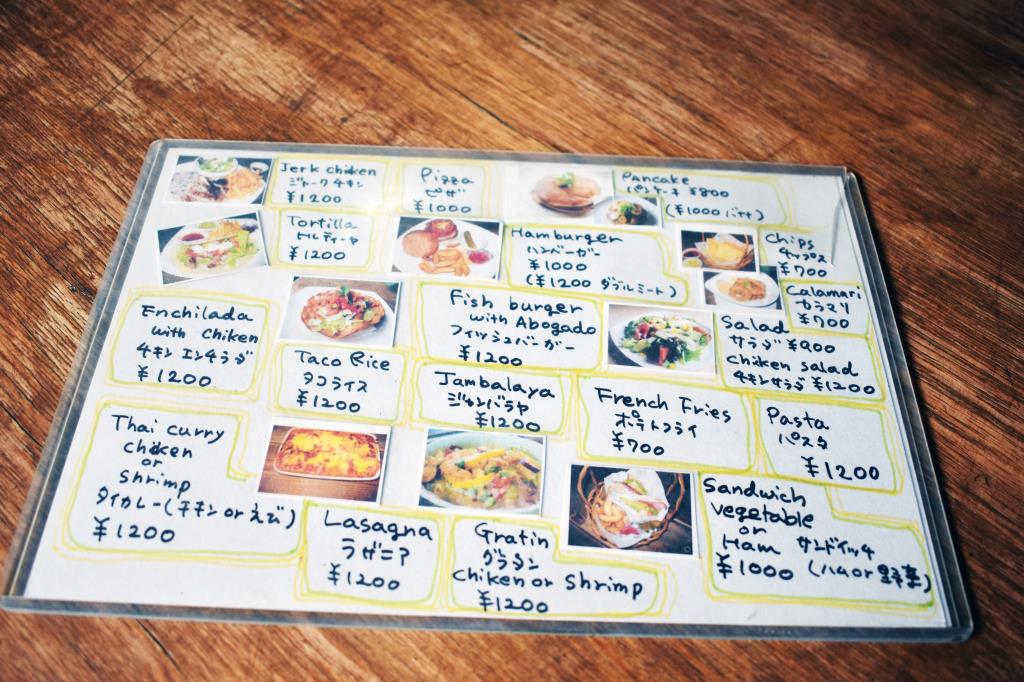 Jerk chiken
ジャークチキン
¥1200
Pizza
ピザ
¥1000
Pancake
パンケーキ ¥800
(¥1000 バナナ)
Tortilla
トルティーヤ
¥1200
Hamburger
ハンバーガー
¥1000
(¥1200 ダブルミート)
Chips
チップス
¥700
Calamari
カラマリ
¥700
Enchilada
with Chiken
チキン エンチラダ
¥1200
Taco Rice
タコライス
¥1200
Fish burger
with Abogado
フィッシュバーガー
¥1200
Salad
サラダ ¥900
chiken salad
チキンサラダ ¥1200
Jambalaya
ジャンバラヤ
¥1200
French Fries
ポテトフライ
¥700
Pasta
パスタ
¥1200
Thai curry
chiken
or
shrimp
タイカレー(チキン or えび)
¥1200
Lasagna
ラザニア
¥1200
Gratin
グラタン
chiken or Shrimp
¥1200
Sandwich
vegetable
or
Ham サンドイッチ
¥1000 (ハム or 野菜)